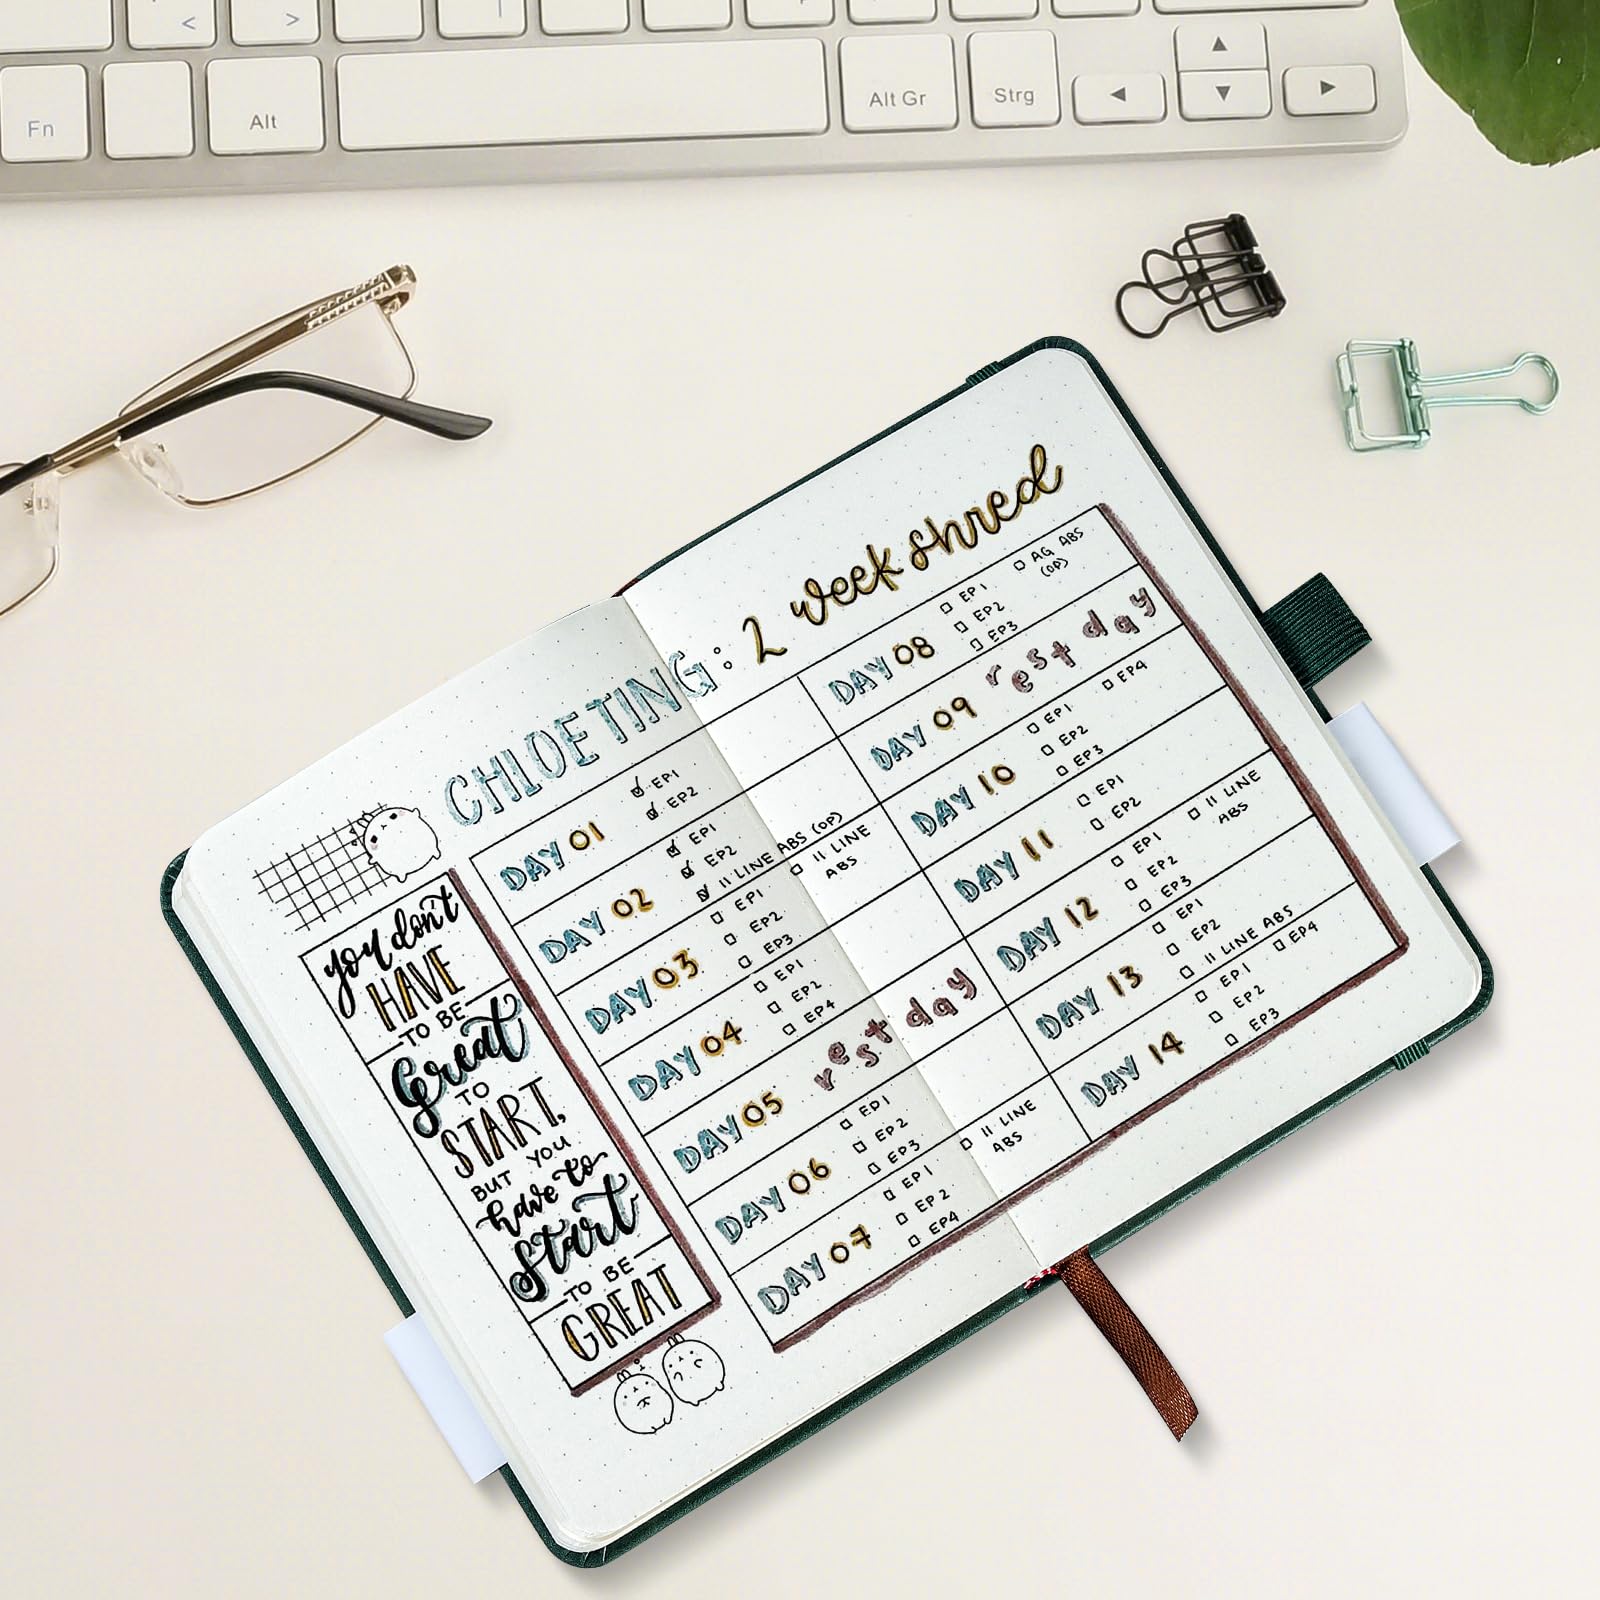 <
>
Fn
Alt
Alt Gr
Strg
CHLOETING: 2 week shred
you don't
HAVE
TO BE
Great
TO
START,
BUT YOU
have to
Start
TO BE
GREAT
DAY 01
EP1
EP2
DAY 02
EP1
EP2
11 LINE ABS (OP)
DAY 03
EP1
EP2
EP3
11 LINE
ABS
DAY 04
EP1
EP2
EP4
DAY 05
rest day
DAY 06
EP1
EP2
EP3
DAY 07
EP1
EP2
EP4
11 LINE
ABS
DAY 08
EP1
EP2
EP3
AG ABS
(OP)
DAY 09
rest day
DAY 10
EP1
EP2
EP3
EP4
DAY 11
EP1
EP2
DAY 12
EP1
EP2
EP3
11 LINE
ABS
DAY 13
EP1
EP2
11 LINE ABS
DAY 14
EP1
EP2
EP3
EP4